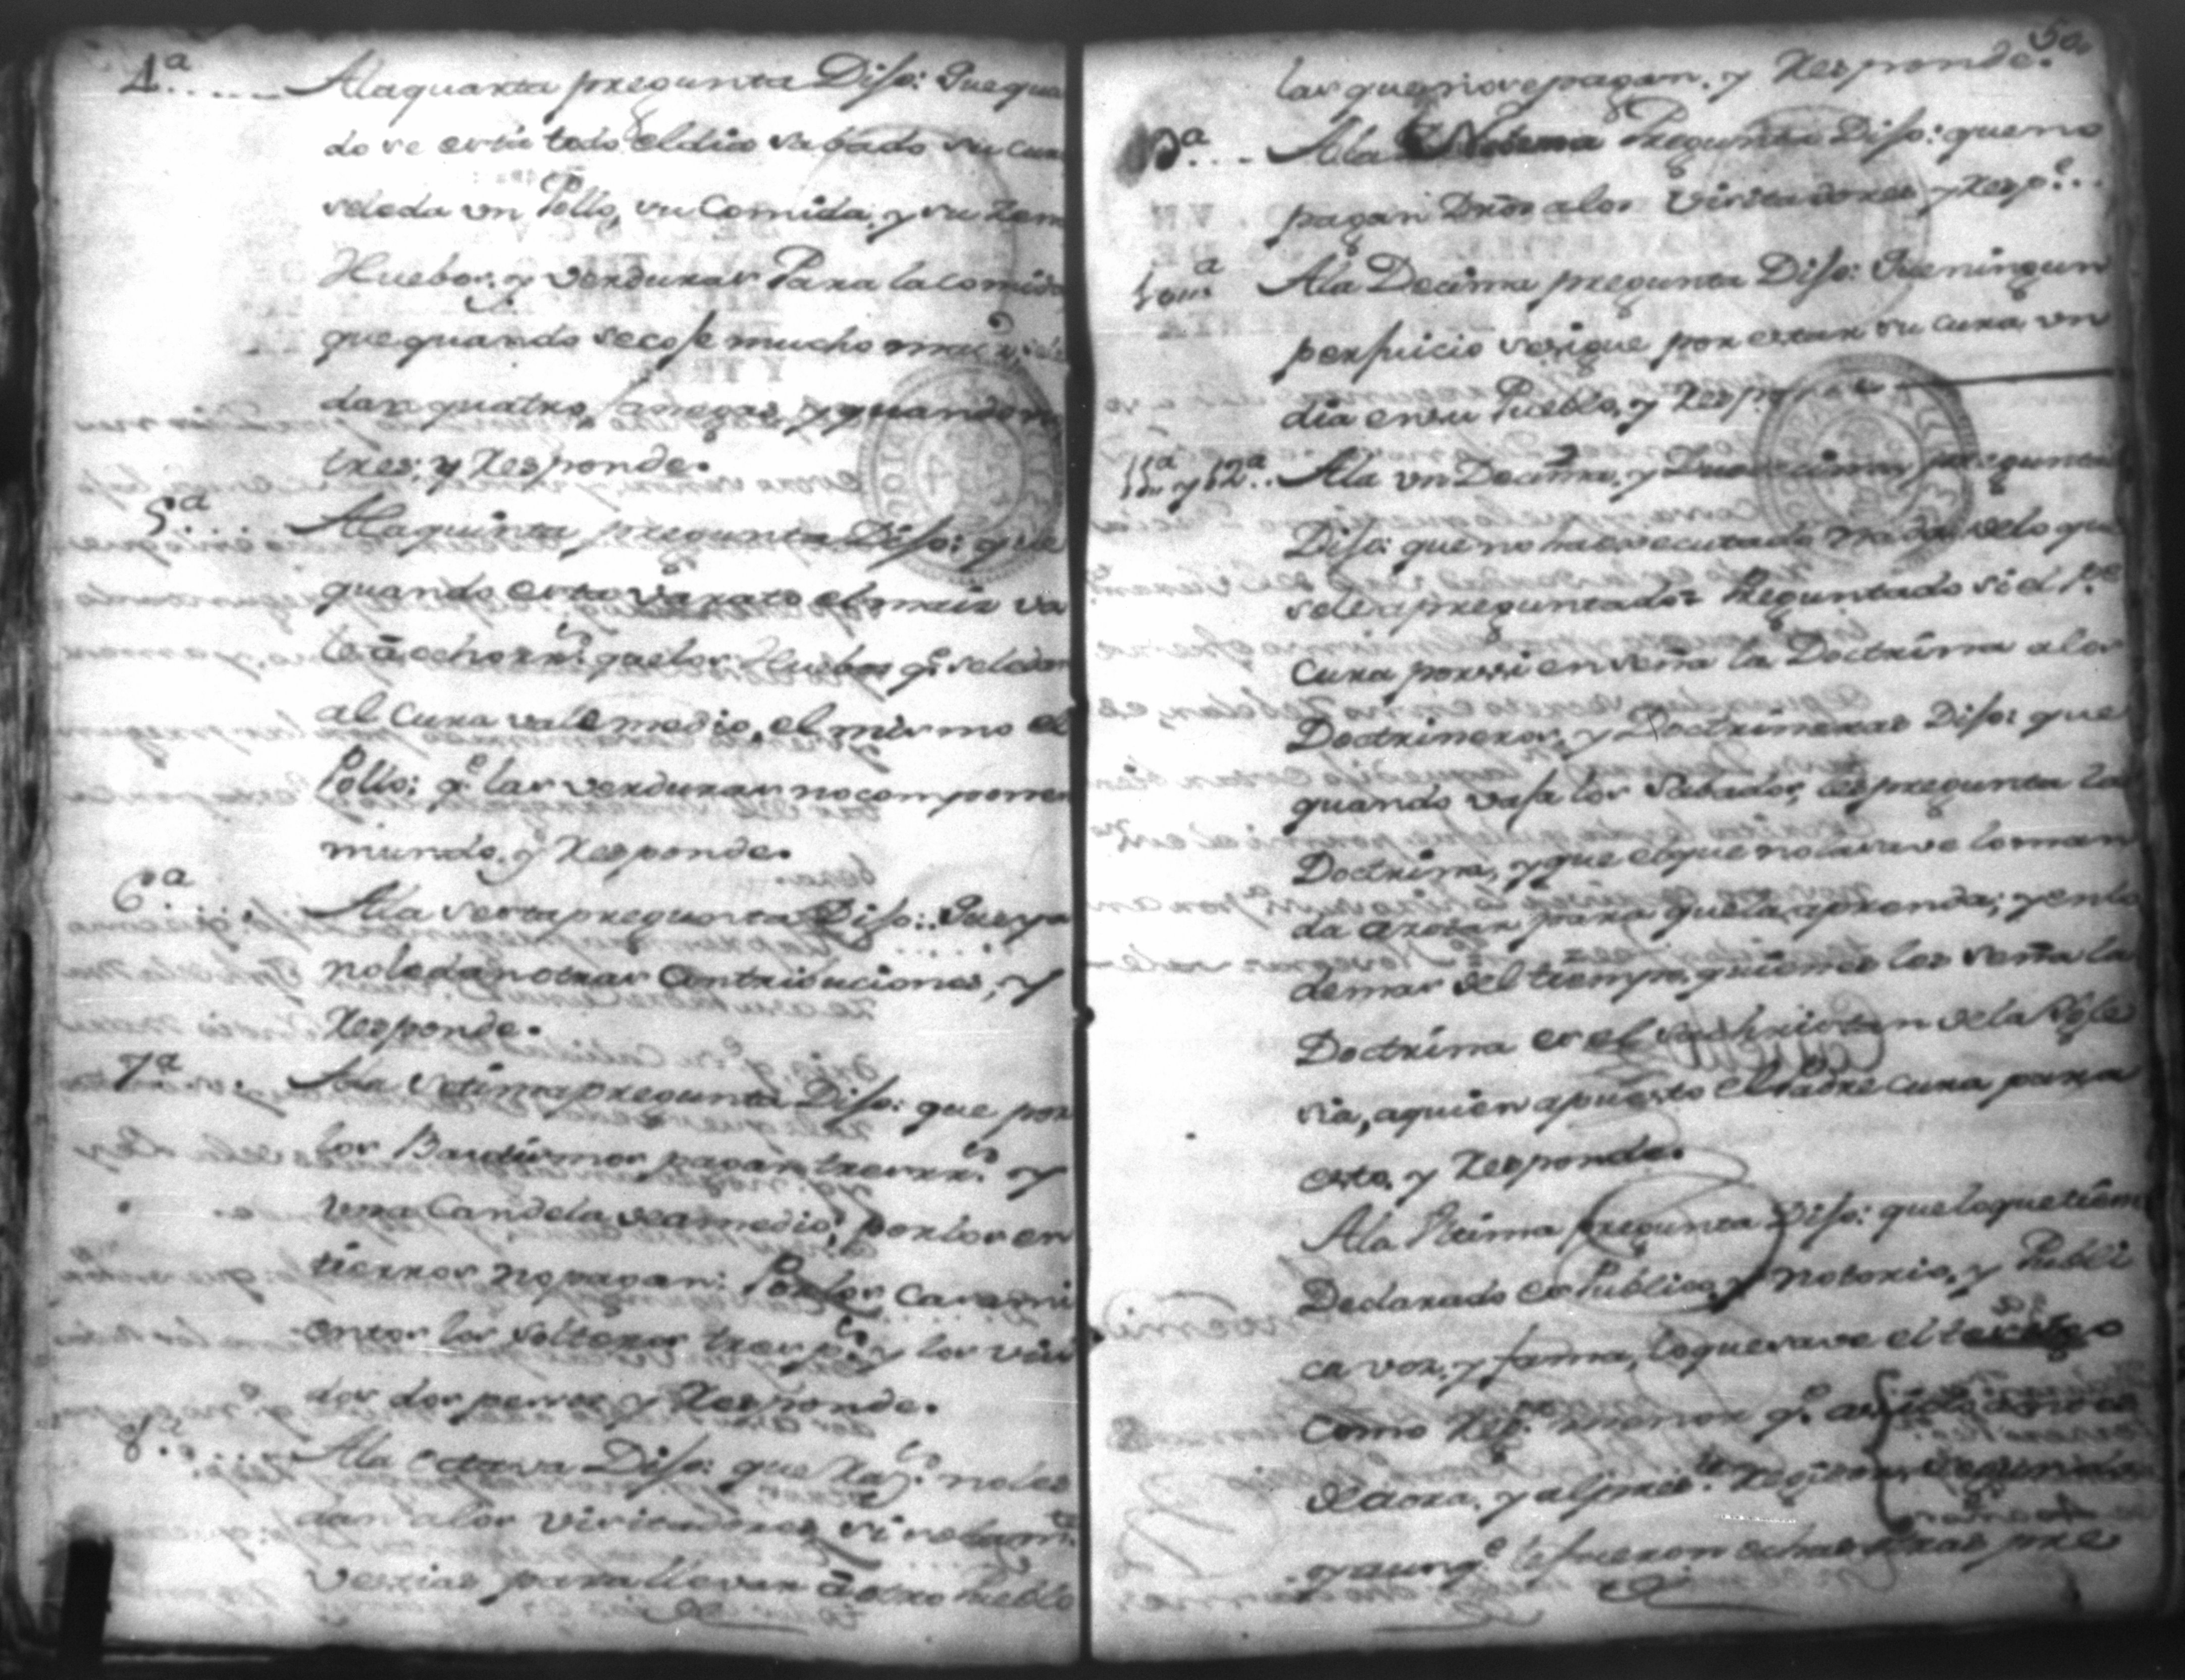 4ª..... Ala quarta pregunta Dijo: Que quan
do se está todo el dia sabado su cura
sele da un Pollo, su Comida, y su Zena
Huebos, y verduras Para la comida
que quando se coje mucho mais, le
dan quatro fanegas, y quando no
tres; y Responde.
5ª... Ala quinta pregunta Dijo: que
quando esta varato el mais va
le â ocho rrˢ. que los Huebos qᵉ. se le dan
al Cura vale medio, el mismo el
Pollo: qᵉ. las verduras no componen
mundo, y Responde.
6ª.... Ala sexta pregunta Dijo: Que ya
no le dan otras Contribuciones, y
Responde.
7ª.. Ala Setima pregunta Dijo: que por
los Bautismos pagan tres rrˢ. y
una Candela de a medio; por los en
tierros no pagan: Por los Casami
entos los solteros tres pˢ. y los viu
dos dos pesos y Responde.
8ª..... Ala octava Dijo: que no les
dan alos visitadores, si solam.ᵗᵉ
vestias, para llevar â otro Pueblo
50.
las que no se pagan. y Responde.
9ª... Ala Nobena Pregunta Dijo: que no
pagan Dros alos Visitadores, y Respᵉ...
10ª Ala Decima pregunta Dijo: Que ningun
perjuicio se sigue por estar su cura un
dia en su Pueblo, y Respᵉ
11ª y 12ª.. Ala un Decima, y Duodecima pregunta
Dijo: que no ha esecutado nada de lo que
se le a preguntado. Preguntado si el Pᵉ.
Cura por si enseña la Doctrina alos
Doctrineros, y Doctrineras Dijo: que
quando vaja los Sabados, les pregunta la
Doctrina, y que el que no la save lo man
da azotar para que la aprenda; y en lo
demas del tiempo, quien les seña la
Doctrina es el sachristan de la Ygle
sia, a quien a puesto el Padre Cura para
esto, y Responde.
Ala Ultima pregunta Dijo: que lo que tiene
Declarado es Publico, y notorio, y Publi
ca voz, y fama, lo que save el testigo
como menor qᵉ. a sido antes
de aora, y al presᵗᵉ. Regidor
y aunqᵉ. le fueron echas otras pre